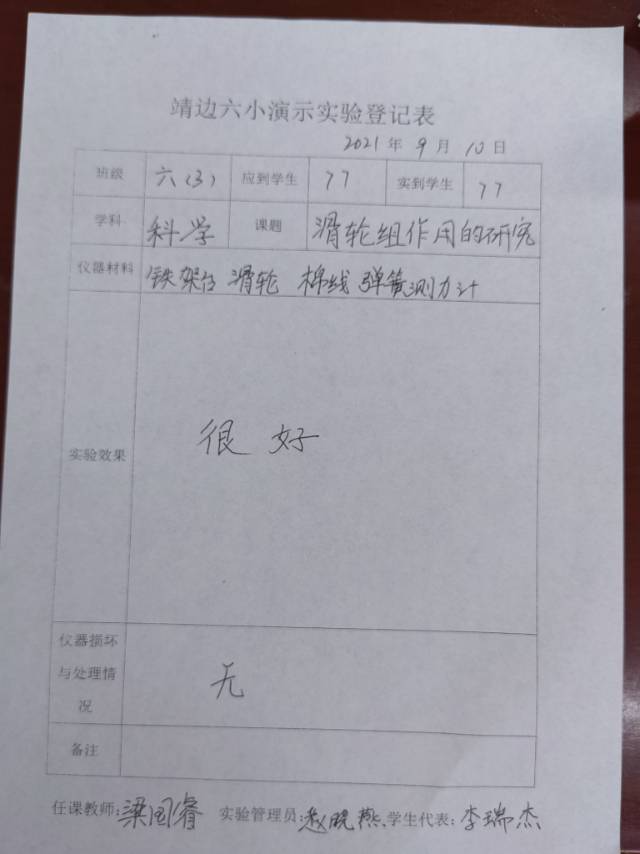 靖边六小演示实验登记表
2021 年 9 月 10 日
班级 六(3) 应到学生 77 实到学生 77
学科 科学 课题 滑轮组作用的研究
仪器材料 铁架台 滑轮 棉线 弹簧测力计
实验效果 很好
仪器损坏
与处理情
况
无
备注
任课教师:梁国睿 实验管理员:赵晓燕.学生代表:李瑞杰